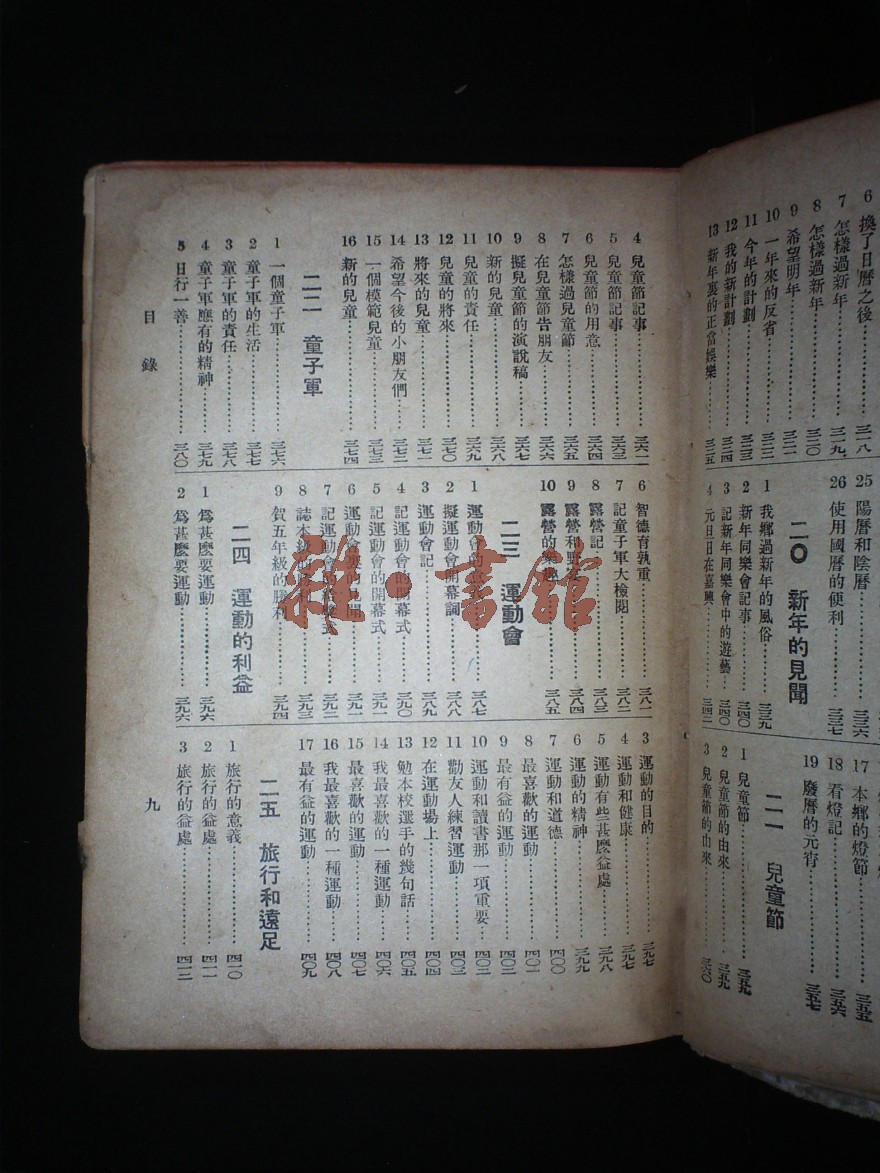 6 換了日曆之後……三一八
7 怎樣過新年……三一九
8 怎樣過新年……三二〇
9 希望明年……三二一
10 一年來的反省……三二二
11 今年的計劃……三二三
12 我的新計劃……三二四
13 新年裏的正當娛樂……三二五
25 陽曆和陰曆……三三六
26 使用國曆的便利……三三七
二〇 新年的見聞
1 我鄉過新年的風俗……三三九
2 新年同樂會記事……三四〇
3 記新年同樂會中的遊藝……三四〇
4 元旦日在嘉興……三四二
17 本鄉的燈節……三五五
18 看燈記……三五六
19 廢曆的元宵……三五七
二一 兒童節
1 兒童節……三五九
2 兒童節的由來……三五九
3 兒童節的由來……三六〇
4 兒童節記事……三六二
5 兒童節記事……三六三
6 兒童節的用意……三六四
7 怎樣過兒童節……三六五
8 在兒童節告朋友……三六六
9 擬兒童節的演說稿……三六七
10 新的兒童……三六八
11 兒童的責任……三六九
12 兒童的將來……三七〇
13 將來的兒童……三七一
14 希望今後的小朋友們……三七二
15 一個模範兒童……三七三
16 新的兒童……三七四
二二 童子軍
1 一個童子軍……三七六
2 童子軍的生活……三七七
3 童子軍的責任……三七八
4 童子軍應有的精神……三七九
5 日行一善……三八〇
6 智德育孰重……三八一
7 記童子軍大檢閱……三八二
8 露營記……三八三
9 露營和野宴……三八四
10 露營的樂趣……三八五
二三 運動會
1 運動會的意義……三八七
2 擬運動會開幕詞……三八八
3 運動會記……三八九
4 記運動會的開幕式……三九〇
5 記運動會的開幕式……三九一
6 運動會裏的見聞……三九一
7 記運動會的閉幕式……三九二
8 誌本級的勝利……三九三
9 賀五年級的勝利……三九四
二四 運動的利益
1 爲甚麼要運動……三九六
2 爲甚麼要運動……三九六
3 運動的目的……三九七
4 運動和健康……三九七
5 運動有些甚麼益處……三九八
6 運動的精神……三九九
7 運動和道德……四〇〇
8 最喜歡的運動……四〇二
9 最有益的運動……四〇二
10 運動和讀書那一項重要……四〇三
11 勸友人練習運動……四〇三
12 在運動場上……四〇四
13 勉本校選手的幾句話……四〇五
14 我最喜歡的一種運動……四〇六
15 最喜歡的運動……四〇七
16 我最喜歡的一種運動……四〇八
17 最有益的運動……四〇九
二五 旅行和遠足
1 旅行的意義……四一〇
2 旅行的益處……四一一
3 旅行的益處……四一二
目錄
九
雜·書館